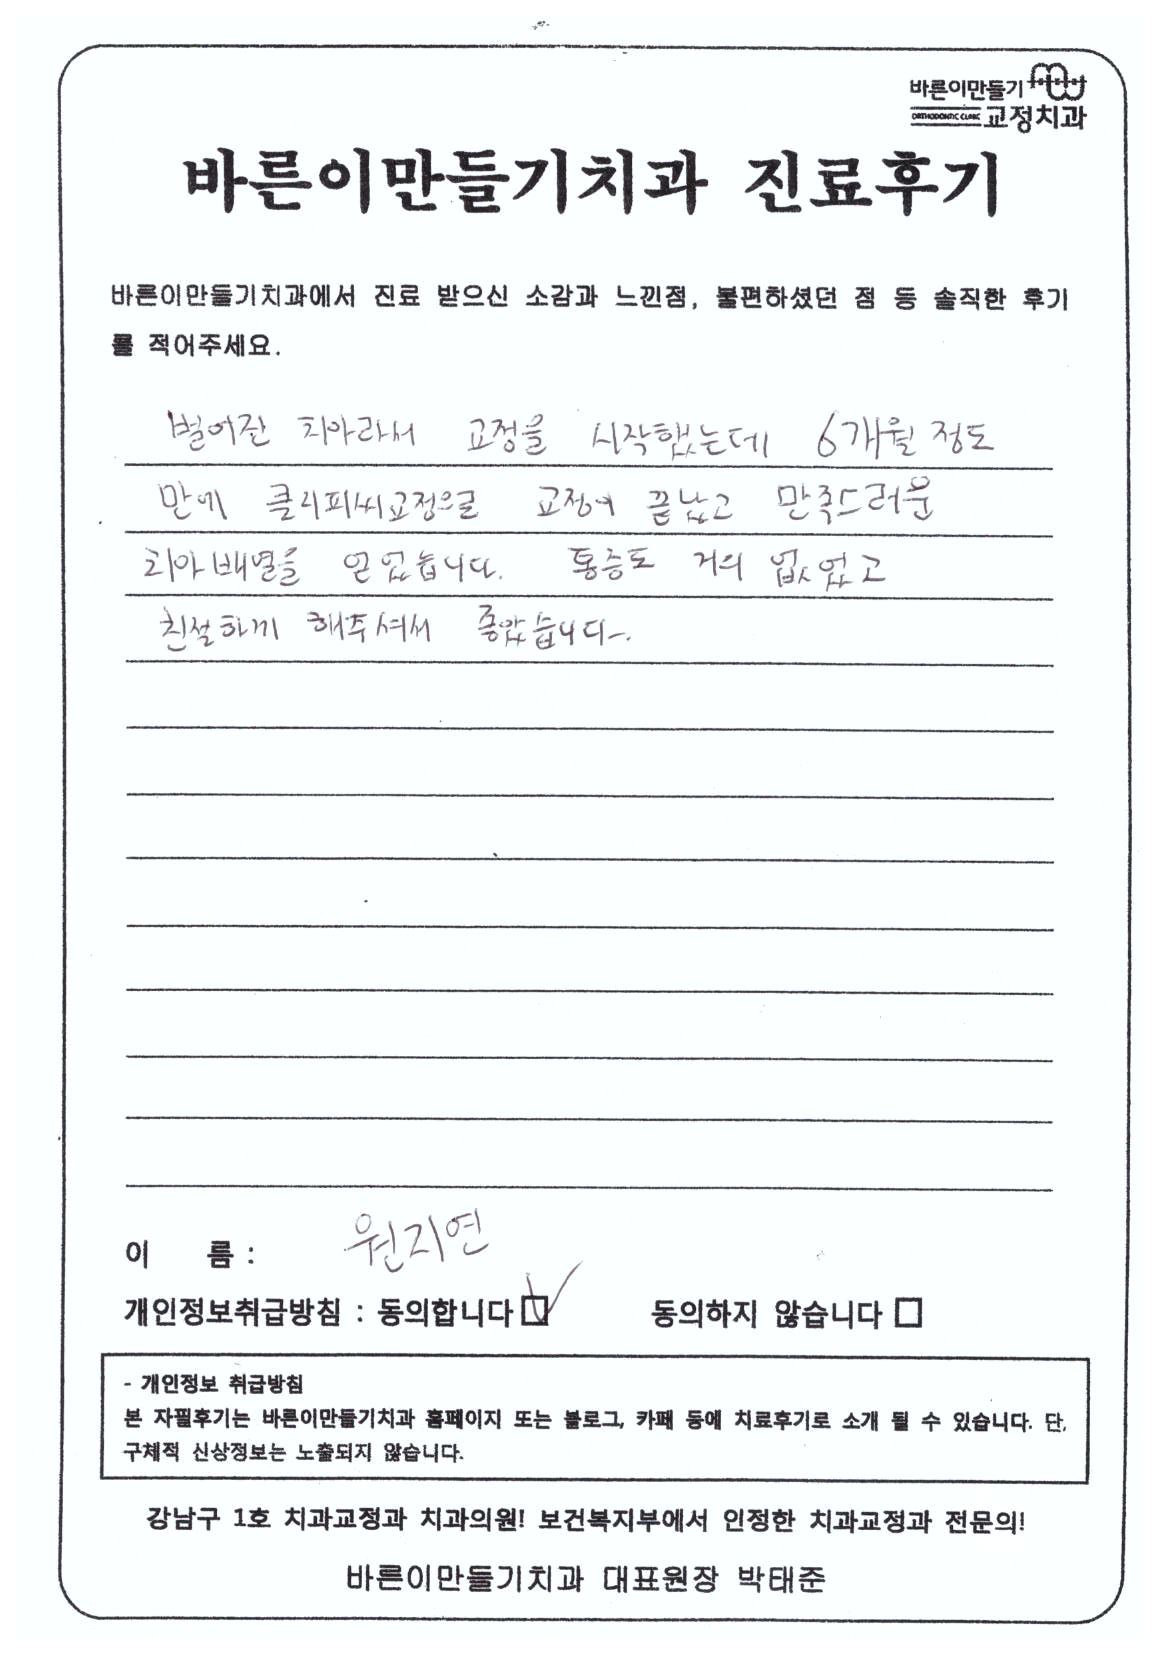 바른이만들기
ORTHODONTIC CLINIC 교정치과
바른이만들기치과 진료후기
바른이만들기치과에서 진료 받으신 소감과 느낀점, 불편하셨던 점 등 솔직한 후기
를 적어주세요.
벌어진 치아라서 교정을 시작했는데 6개월 정도
만에 클리피씨교정으로 교정이 끝났고 만족드러운
치아배열을 얻었습니다. 통증도 거의 없었고
친절하게 해주셔서 좋았습니다.
이 름 : 원지연
개인정보취급방침 : 동의합니다 ☑ 동의하지 않습니다 □
- 개인정보 취급방침
본 자필후기는 바른이만들기치과 홈페이지 또는 블로그, 카페 등에 치료후기로 소개 될 수 있습니다. 단,
구체적 신상정보는 노출되지 않습니다.
강남구 1호 치과교정과 치과의원! 보건복지부에서 인정한 치과교정과 전문의!
바른이만들기치과 대표원장 박태준